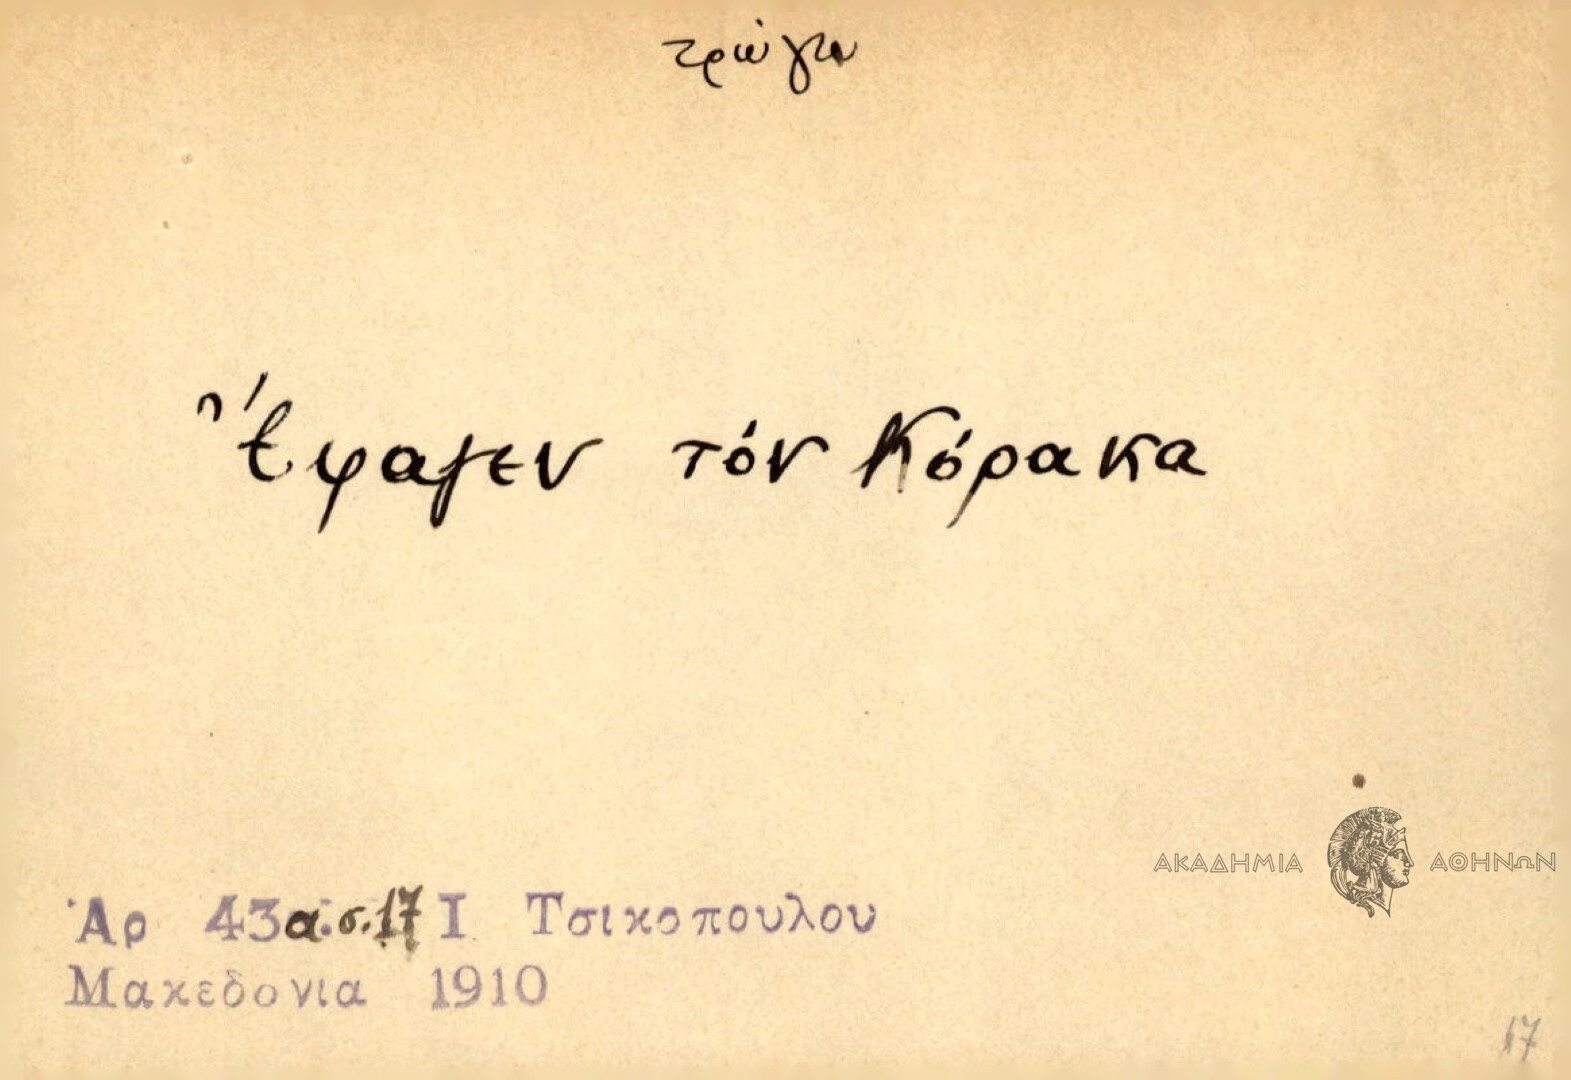 τρώγω
Ἔφαγεν τόν Κόρακα
ΑΚΑΔΗΜΙΑ ΑΘΗΝΩΝ
Ἀρ 43α.σ.17 Ι Τσικοπουλου
Μακεδονια 1910
17